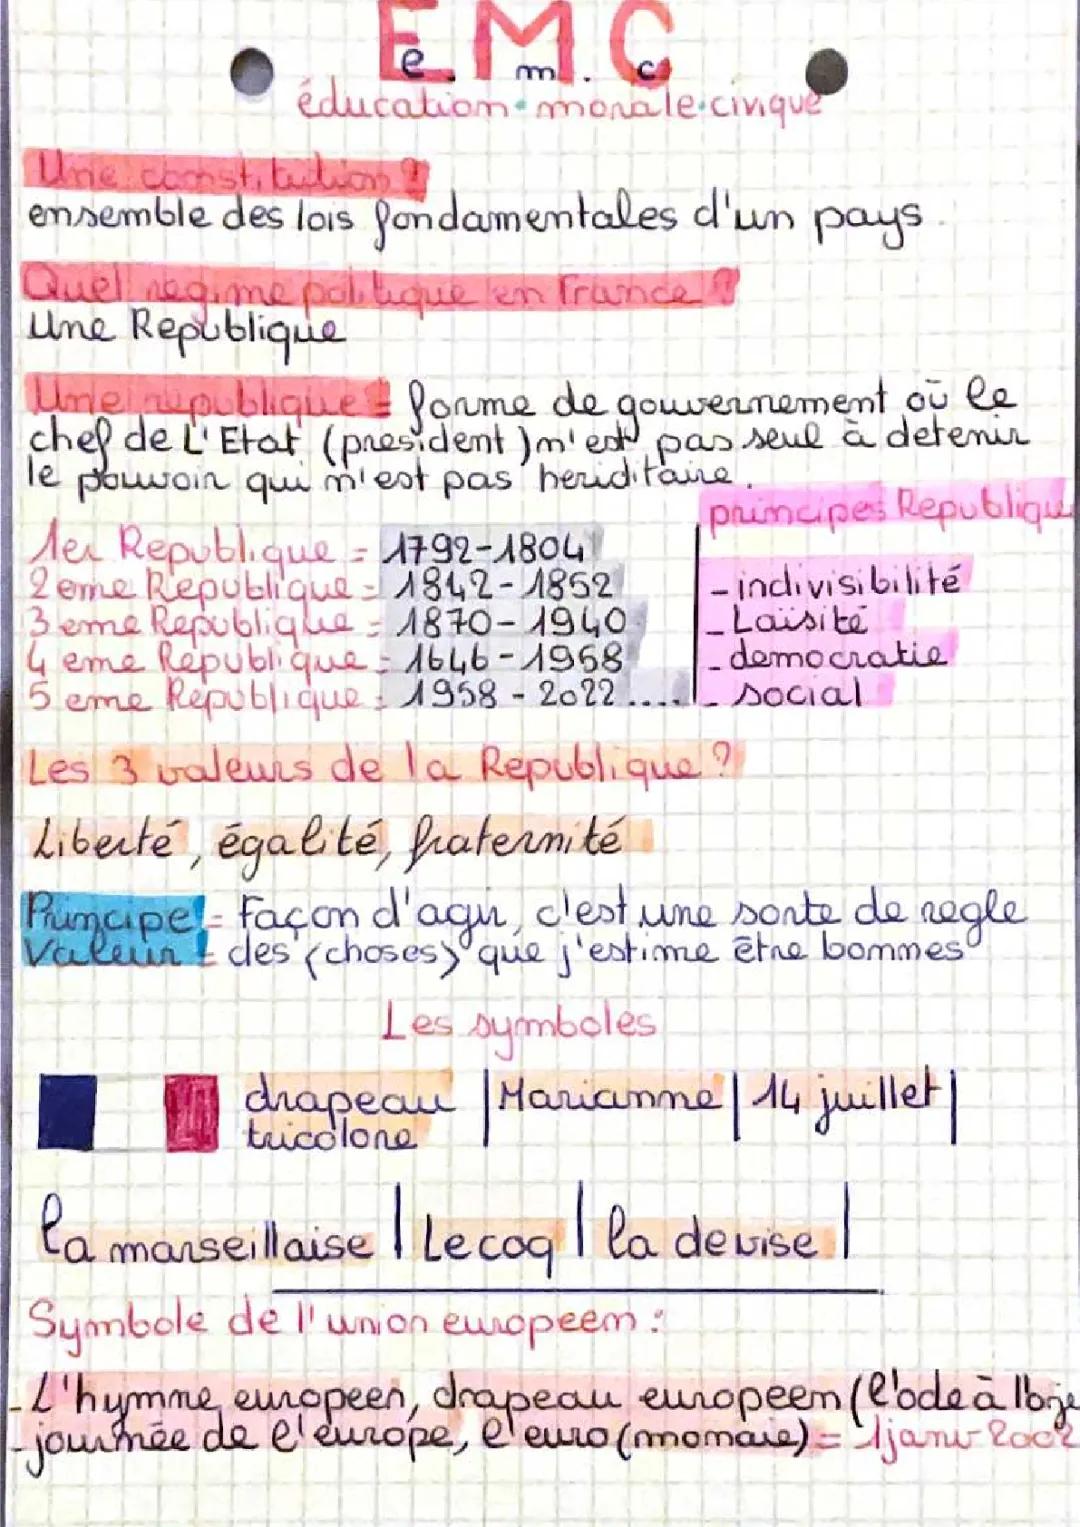 EMC
e. m. c
éducation • morale • civique
Une constitution ?
ensemble des lois fondamentales d'un pays.
Quel regime politique en France ?
Une Republique
Une republique = forme de gouvernement où le
chef de L'Etat (president) n'est pas seul à detenir
le pouvoir qui n'est pas heriditaire.
principes Republique
1er Republique = 1792-1804
2eme Republique = 1842-1852
3eme Republique = 1870-1940
4eme Republique = 1646-1958
5eme Republique = 1958-2022....
- indivisibilité
- Laïsité
- democratie
- social
Les 3 valeurs de la Republique ?
Liberté, égalité, fraternité
Principe = Façon d'agir, c'est une sorte de regle
Valeur = des (choses) que j'estime être bonnes
Les symboles
drapeau | Marianne | 14 juillet |
tricolore
la marseillaise | Le coq | la devise |
Symbole de l'union europeen :
- L'hymne europeen, drapeau europeen (l'ode à l
- journée de l'europe, l'euro (monnaie) = 1 janv 2002